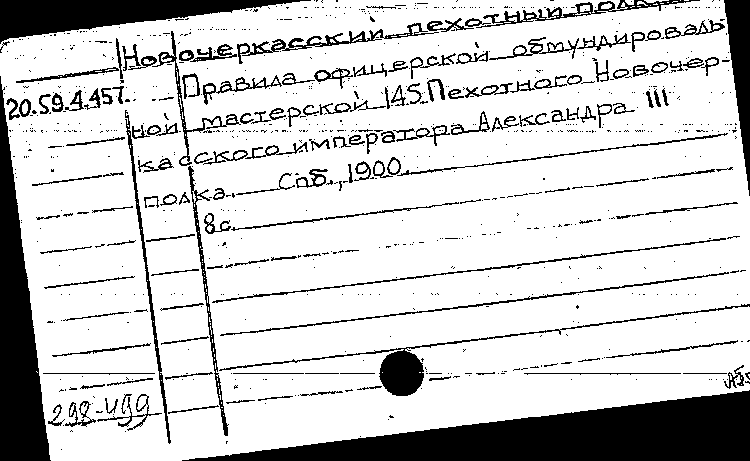 Новочеркасский пехотный полк
20.59.4.457.
Правила офицерской обмундироваль
ной мастерской 145.Пехотного Новочер-
касского императора Александра III
полка. Спб., 1900.
8с.
298-499